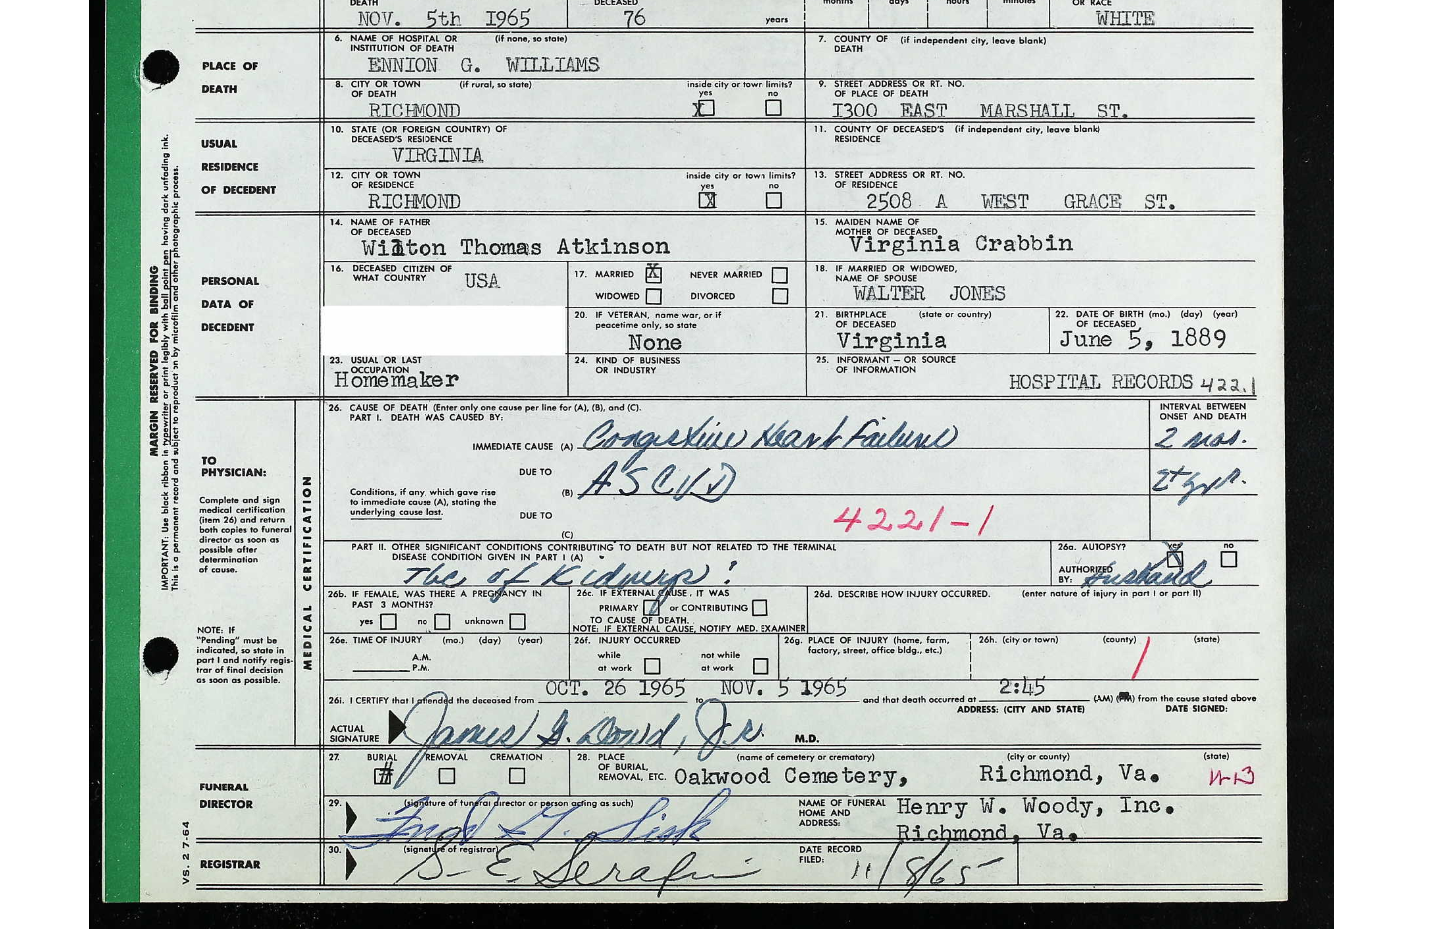 DEATH DECEASED months days hours minutes OR RACE
NOV. 5th 1965 76 years WHITE
PLACE OF DEATH
6. NAME OF HOSPITAL OR (if none, so state) INSTITUTION OF DEATH
ENNION G. WILLIAMS
7. COUNTY OF (if independent city, leave blank) DEATH
8. CITY OR TOWN (if rural, so state) OF DEATH
RICHMOND
inside city or town limits?
yes X no
9. STREET ADDRESS OR RT. NO. OF PLACE OF DEATH
1300 EAST MARSHALL ST.
USUAL RESIDENCE OF DECEDENT
10. STATE (OR FOREIGN COUNTRY) OF DECEASED'S RESIDENCE
VIRGINIA
11. COUNTY OF DECEASED'S (if independent city, leave blank) RESIDENCE
12. CITY OR TOWN OF RESIDENCE
RICHMOND
inside city or town limits?
yes X no
13. STREET ADDRESS OR RT. NO. OF RESIDENCE
2508 A WEST GRACE ST.
PERSONAL DATA OF DECEDENT
14. NAME OF FATHER OF DECEASED
Wilton Thomas Atkinson
15. MAIDEN NAME OF MOTHER OF DECEASED
Virginia Crabbin
16. DECEASED CITIZEN OF WHAT COUNTRY
USA
17. MARRIED X NEVER MARRIED
WIDOWED DIVORCED
18. IF MARRIED OR WIDOWED, NAME OF SPOUSE
WALTER JONES
20. IF VETERAN, name war, or if peacetime only, so state
None
21. BIRTHPLACE (state or country) OF DECEASED
Virginia
22. DATE OF BIRTH (mo.) (day) (year) OF DECEASED
June 5, 1889
23. USUAL OR LAST OCCUPATION
Homemaker
24. KIND OF BUSINESS OR INDUSTRY
25. INFORMANT – OR SOURCE OF INFORMATION
HOSPITAL RECORDS 422.1
MARGIN RESERVED FOR BINDING
IMPORTANT: Use black ribbon in typewriter or print legibly with ball point pen having dark unfading ink.
This is a permanent record and subject to reproduction by microfilm and other photographic process.
TO PHYSICIAN:
Complete and sign
medical certification
(item 26) and return
both copies to funeral
director as soon as
possible after
determination
of cause.
NOTE: IF
"Pending" must be
indicated, so state in
part I and notify regis-
trar of final decision
as soon as possible.
MEDICAL CERTIFICATION
26. CAUSE OF DEATH (Enter only one cause per line for (A), (B), and (C).
PART I. DEATH WAS CAUSED BY:
INTERVAL BETWEEN ONSET AND DEATH
IMMEDIATE CAUSE (A) Congestive Heart Failure 2 mos.
DUE TO
(B) ASCVD 2+ yrs.
Conditions, if any which gave rise
to immediate cause (A), stating the
underlying cause last.
DUE TO
(C)
4221-1
PART II. OTHER SIGNIFICANT CONDITIONS CONTRIBUTING TO DEATH BUT NOT RELATED TO THE TERMINAL
DISEASE CONDITION GIVEN IN PART I (A)
Tbc of Kidneys?
26a. AUTOPSY? yes X no
AUTHORIZED BY: Husband
26b. IF FEMALE, WAS THERE A PREGNANCY IN PAST 3 MONTHS?
yes no unknown
26c. IF EXTERNAL CAUSE, IT WAS
PRIMARY or CONTRIBUTING
TO CAUSE OF DEATH.
NOTE: IF EXTERNAL CAUSE, NOTIFY MED. EXAMINER
26d. DESCRIBE HOW INJURY OCCURRED. (enter nature of injury in part I or part II)
26e. TIME OF INJURY (mo.) (day) (year)
A.M.
P.M.
26f. INJURY OCCURRED
while at work not while at work
26g. PLACE OF INJURY (home, farm, factory, street, office bldg., etc.)
26h. (city or town) (county) (state)
OCT. 26 1965 NOV. 5 1965 2:45
26i. I CERTIFY that I attended the deceased from to and that death occurred at (AM) (PM) from the cause stated above
ADDRESS: (CITY AND STATE) DATE SIGNED:
ACTUAL SIGNATURE James G. Dowd, Jr. M.D.
FUNERAL DIRECTOR
27. BURIAL REMOVAL CREMATION
28. PLACE OF BURIAL, REMOVAL, ETC. (name of cemetery or crematory) (city or county) (state)
Oakwood Cemetery, Richmond, Va.
29. (signature of funeral director or person acting as such)
Sisk
NAME OF FUNERAL HOME AND ADDRESS:
Henry W. Woody, Inc.
Richmond, Va.
REGISTRAR
30. (signature of registrar)
S. E. Serafini
DATE RECORD FILED: 11/8/65
VS. 2 7-64